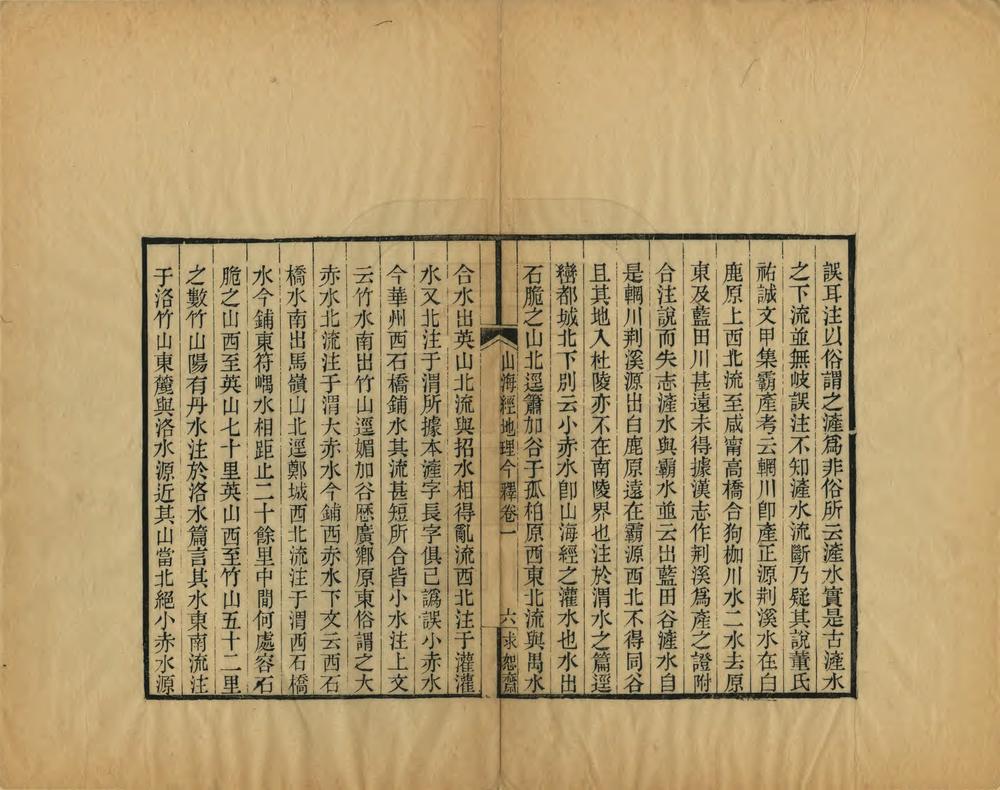 誤耳注以俗謂之滻爲非俗所云滻水實是古滻水
之下流並無岐誤注不知滻水流斷乃疑其說董氏
祐誠文甲集霸產考云輞川卽產正源荆溪水在白
鹿原上西北流至咸甯高橋合狗枷川水二水去原
東及藍田川甚遠未得據漢志作荆溪爲產之證附
合注說而失志滻水與霸水並云出藍田谷滻水自
是輞川荆溪源出白鹿原遠在霸源西北不得同谷
且其地入杜陵亦不在南陵界也注於渭水之篇逕
巒都城北下別云小赤水卽山海經之灌水也水出
石脆之山北逕蕭加谷于孤柏原西東北流與禺水
山海經地理今釋卷一 六 求恕齋
合水出英山北流與招水相得亂流西北注于灌灌
水又北注于渭所據本滻字長字俱已譌誤小赤水
今華州西石橋鋪水其流甚短所合皆小水注上文
云竹水南出竹山逕媚加谷歷廣鄉原東俗謂之大
赤水北流注于渭大赤水今鋪西赤水下文云西石
橋水南出馬嶺山北逕鄭城西北流注于渭西石橋
水今鋪東符嵎水相距止二十餘里中間何處容石
脆之山西至英山七十里英山西至竹山五十二里
之數竹山陽有丹水注於洛水篇言其水東南流注
于洛竹山東麓與洛水源近其山當北絕小赤水源